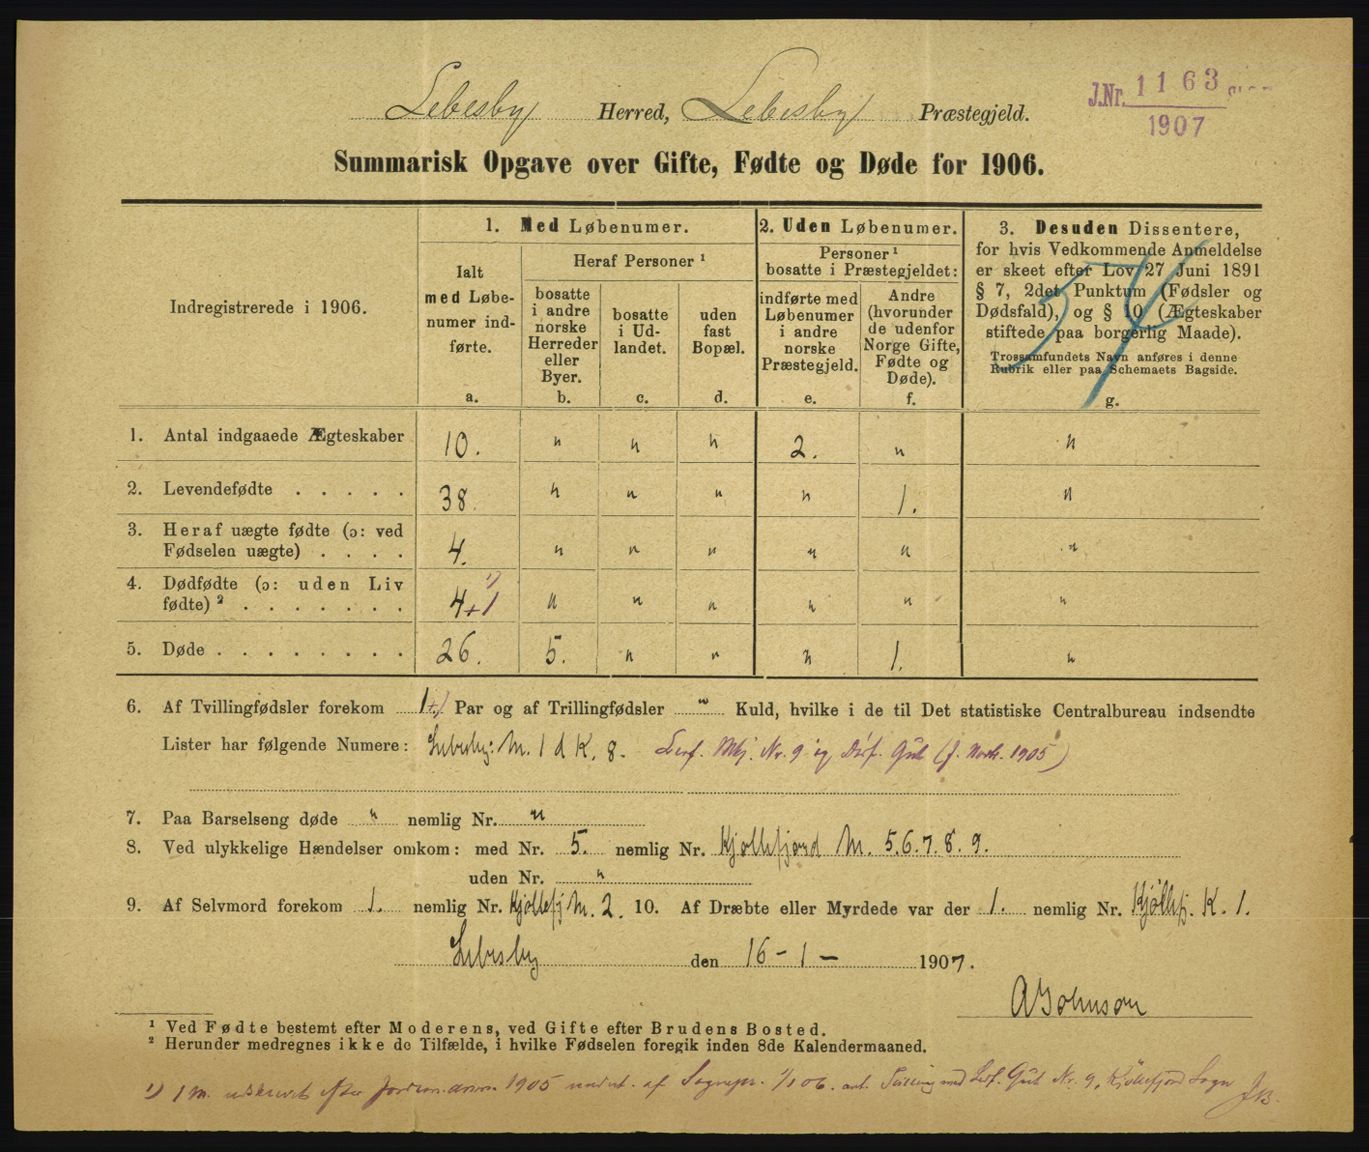 J.Nr. 1163
1907
Lebesby Herred, Lebesby Præstegjeld.
Summarisk Opgave over Gifte, Fødte og Døde for 1906.
Indregistrerede i 1906.
1. Med Løbenumer.
Ialt
med Løbe-
numer ind-
førte.
a.
Heraf Personer ¹
bosatte
i andre
norske
Herreder
eller
Byer.
b.
bosatte
i Ud-
landet.
c.
uden
fast
Bopæl.
d.
2. Uden Løbenumer.
Personer ¹
bosatte i Præstegjeldet:
indførte med
Løbenumer
i andre
norske
Præstegjeld.
e.
Andre
(hvorunder
de udenfor
Norge Gifte,
Fødte og
Døde).
f.
3. Desuden Dissentere,
for hvis Vedkommende Anmeldelse
er skeet efter Lov 27 Juni 1891
§ 7, 2det Punktum (Fødsler og
Dødsfald), og § 10 (Ægteskaber
stiftede paa borgerlig Maade).
Trossamfundets Navn anføres i denne
Rubrik eller paa Schemaets Bagside.
g.
1. Antal indgaaede Ægteskaber 10. " " " 2. " "
2. Levendefødte . . . . . 38. " " " " 1. "
3. Heraf uægte fødte (ɔ: ved
Fødselen uægte) . . . . 4. " " " " " "
4. Dødfødte (ɔ: uden Liv
fødte) ² . . . . . . . 4+1 ¹) " " " " " "
5. Døde . . . . . . . . 26. 5. " " " 1. "
6. Af Tvillingfødsler forekom 1+1 Par og af Trillingfødsler " Kuld, hvilke i de til Det statistiske Centralbureau indsendte
Lister har følgende Numere: Lebesby: M. 1 & K. 8. Lef. Nr. 9 og Dødf. Gut 1905)
7. Paa Barselseng døde " nemlig Nr. "
8. Ved ulykkelige Hændelser omkom: med Nr. 5. nemlig Nr. Kjøllefjord M. 5.6.7.8.9.
uden Nr. "
9. Af Selvmord forekom 1. nemlig Nr. Kjøllefj M. 2. 10. Af Dræbte eller Myrdede var der 1. nemlig Nr. Kjøllefj. K. 1.
Lebesby den 16-1- 1907.
A Johnson
¹ Ved Fødte bestemt efter Moderens, ved Gifte efter Brudens Bosted.
² Herunder medregnes ikke de Tilfælde, i hvilke Fødselen foregik inden 8de Kalendermaaned.
¹) 1 M. udskrevet efter 1905 af Sognepr. Tvilling med Lef. Gut Nr. 9, Kjøllefjord Sogn